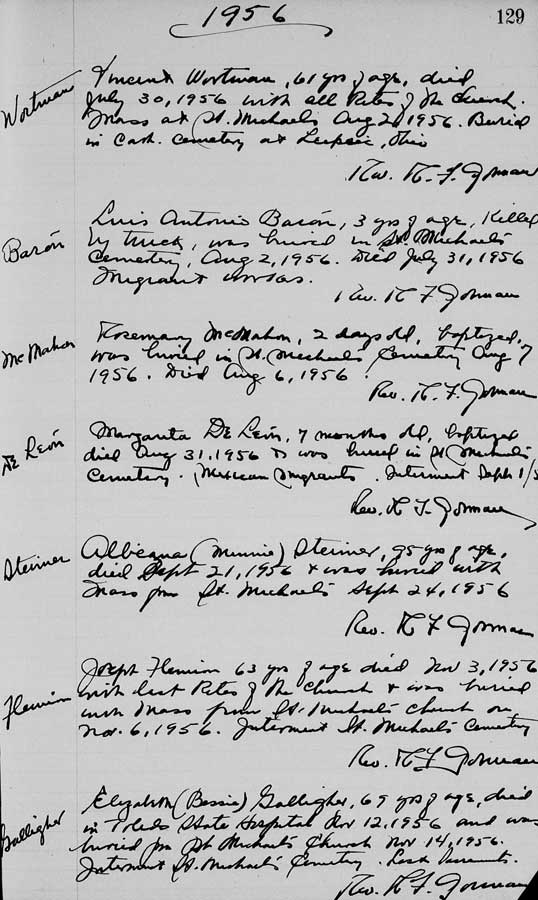 1956
129
Wortman
Vincent Wortman, 61 yrs of age, died
July 30, 1956 with all Rites of the Church.
Mass at St. Michaels Aug 2, 1956. Buried
in Cath. Cemetery at Leipsic, Ohio
Rev. R. F. Gorman
Barón
Luis Antonio Barón, 3 yrs of age, killed
by truck, was buried in St. Michaels
Cemetery, Aug 2, 1956. Died July 31, 1956
Migrant workers.
Rev. R F Gorman
McMahon
Rosemary McMahon, 2 days old, baptized,
was buried in St. Michaels Cemetery Aug 7
1956. Died Aug 6, 1956.
Rev. R. F. Gorman
De León
Margarita De León, 7 months old, baptized
died Aug 31, 1956 & was buried in St Michaels
Cemetery. (Mexican migrants. Interment Sept 1/5
Rev. R F. Gorman
Steiner
(Minnie) Steiner, 95 yrs of age,
died Sept 21, 1956 & was buried with
Mass from St. Michaels Sept 24, 1956
Rev. R F Gorman
Flemion
Joseph Flemion 63 yrs of age died Nov 3, 1956
with last Rites of the Church & was buried
with Mass from St. Michaels Church on
Nov. 6, 1956. Interment St. Michaels Cemetery
Rev. R F Gorman
Gallagher
Elizabeth (Bessie) Gallagher, 69 yrs of age, died
in Toledo State Hospital Nov 12, 1956 and was
buried from St Michaels Church Nov 14, 1956.
Interment St. Michaels Cemetery. Last Sacraments.
Rev. R F. Gorman